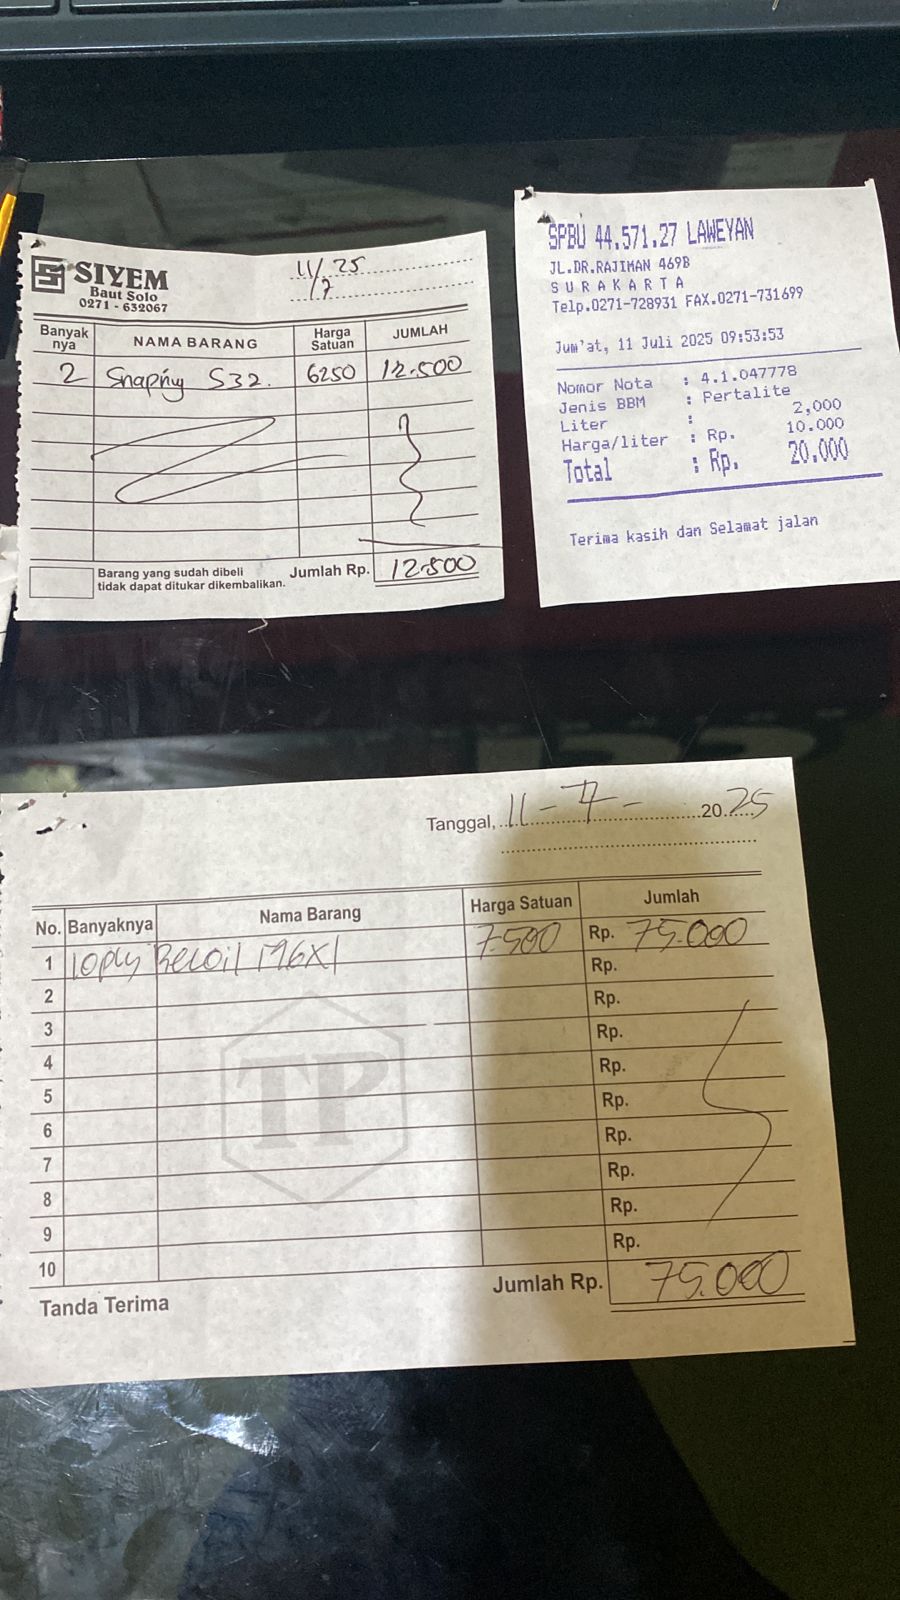 SIYEM
Baut Solo
0271 - 632067
11/7 25
Banyak nya NAMA BARANG Harga Satuan JUMLAH
2 Snapring S32. 6250 12.500
Barang yang sudah dibeli
tidak dapat ditukar dikembalikan.
Jumlah Rp. 12.500
SPBU 44.571.27 LAWEYAN
JL.DR.RAJIMAN 469B
S U R A K A R T A
Telp.0271-728931 FAX.0271-731699
Jum'at, 11 Juli 2025 09:53:53
Nomor Nota : 4.1.047778
Jenis BBM : Pertalite
Liter : 2,000
Harga/liter : Rp. 10.000
Total : Rp. 20.000
Terima kasih dan Selamat jalan
Tanggal, 11 - 7 - 2025
No. Banyaknya Nama Barang Harga Satuan Jumlah
1 10 Recoil M6X1 7.500 Rp. 75.000
2 Rp.
3 Rp.
4 Rp.
5 Rp.
6 Rp.
7 Rp.
8 Rp.
9 Rp.
10 Rp.
TP
Tanda Terima
Jumlah Rp. 75.000